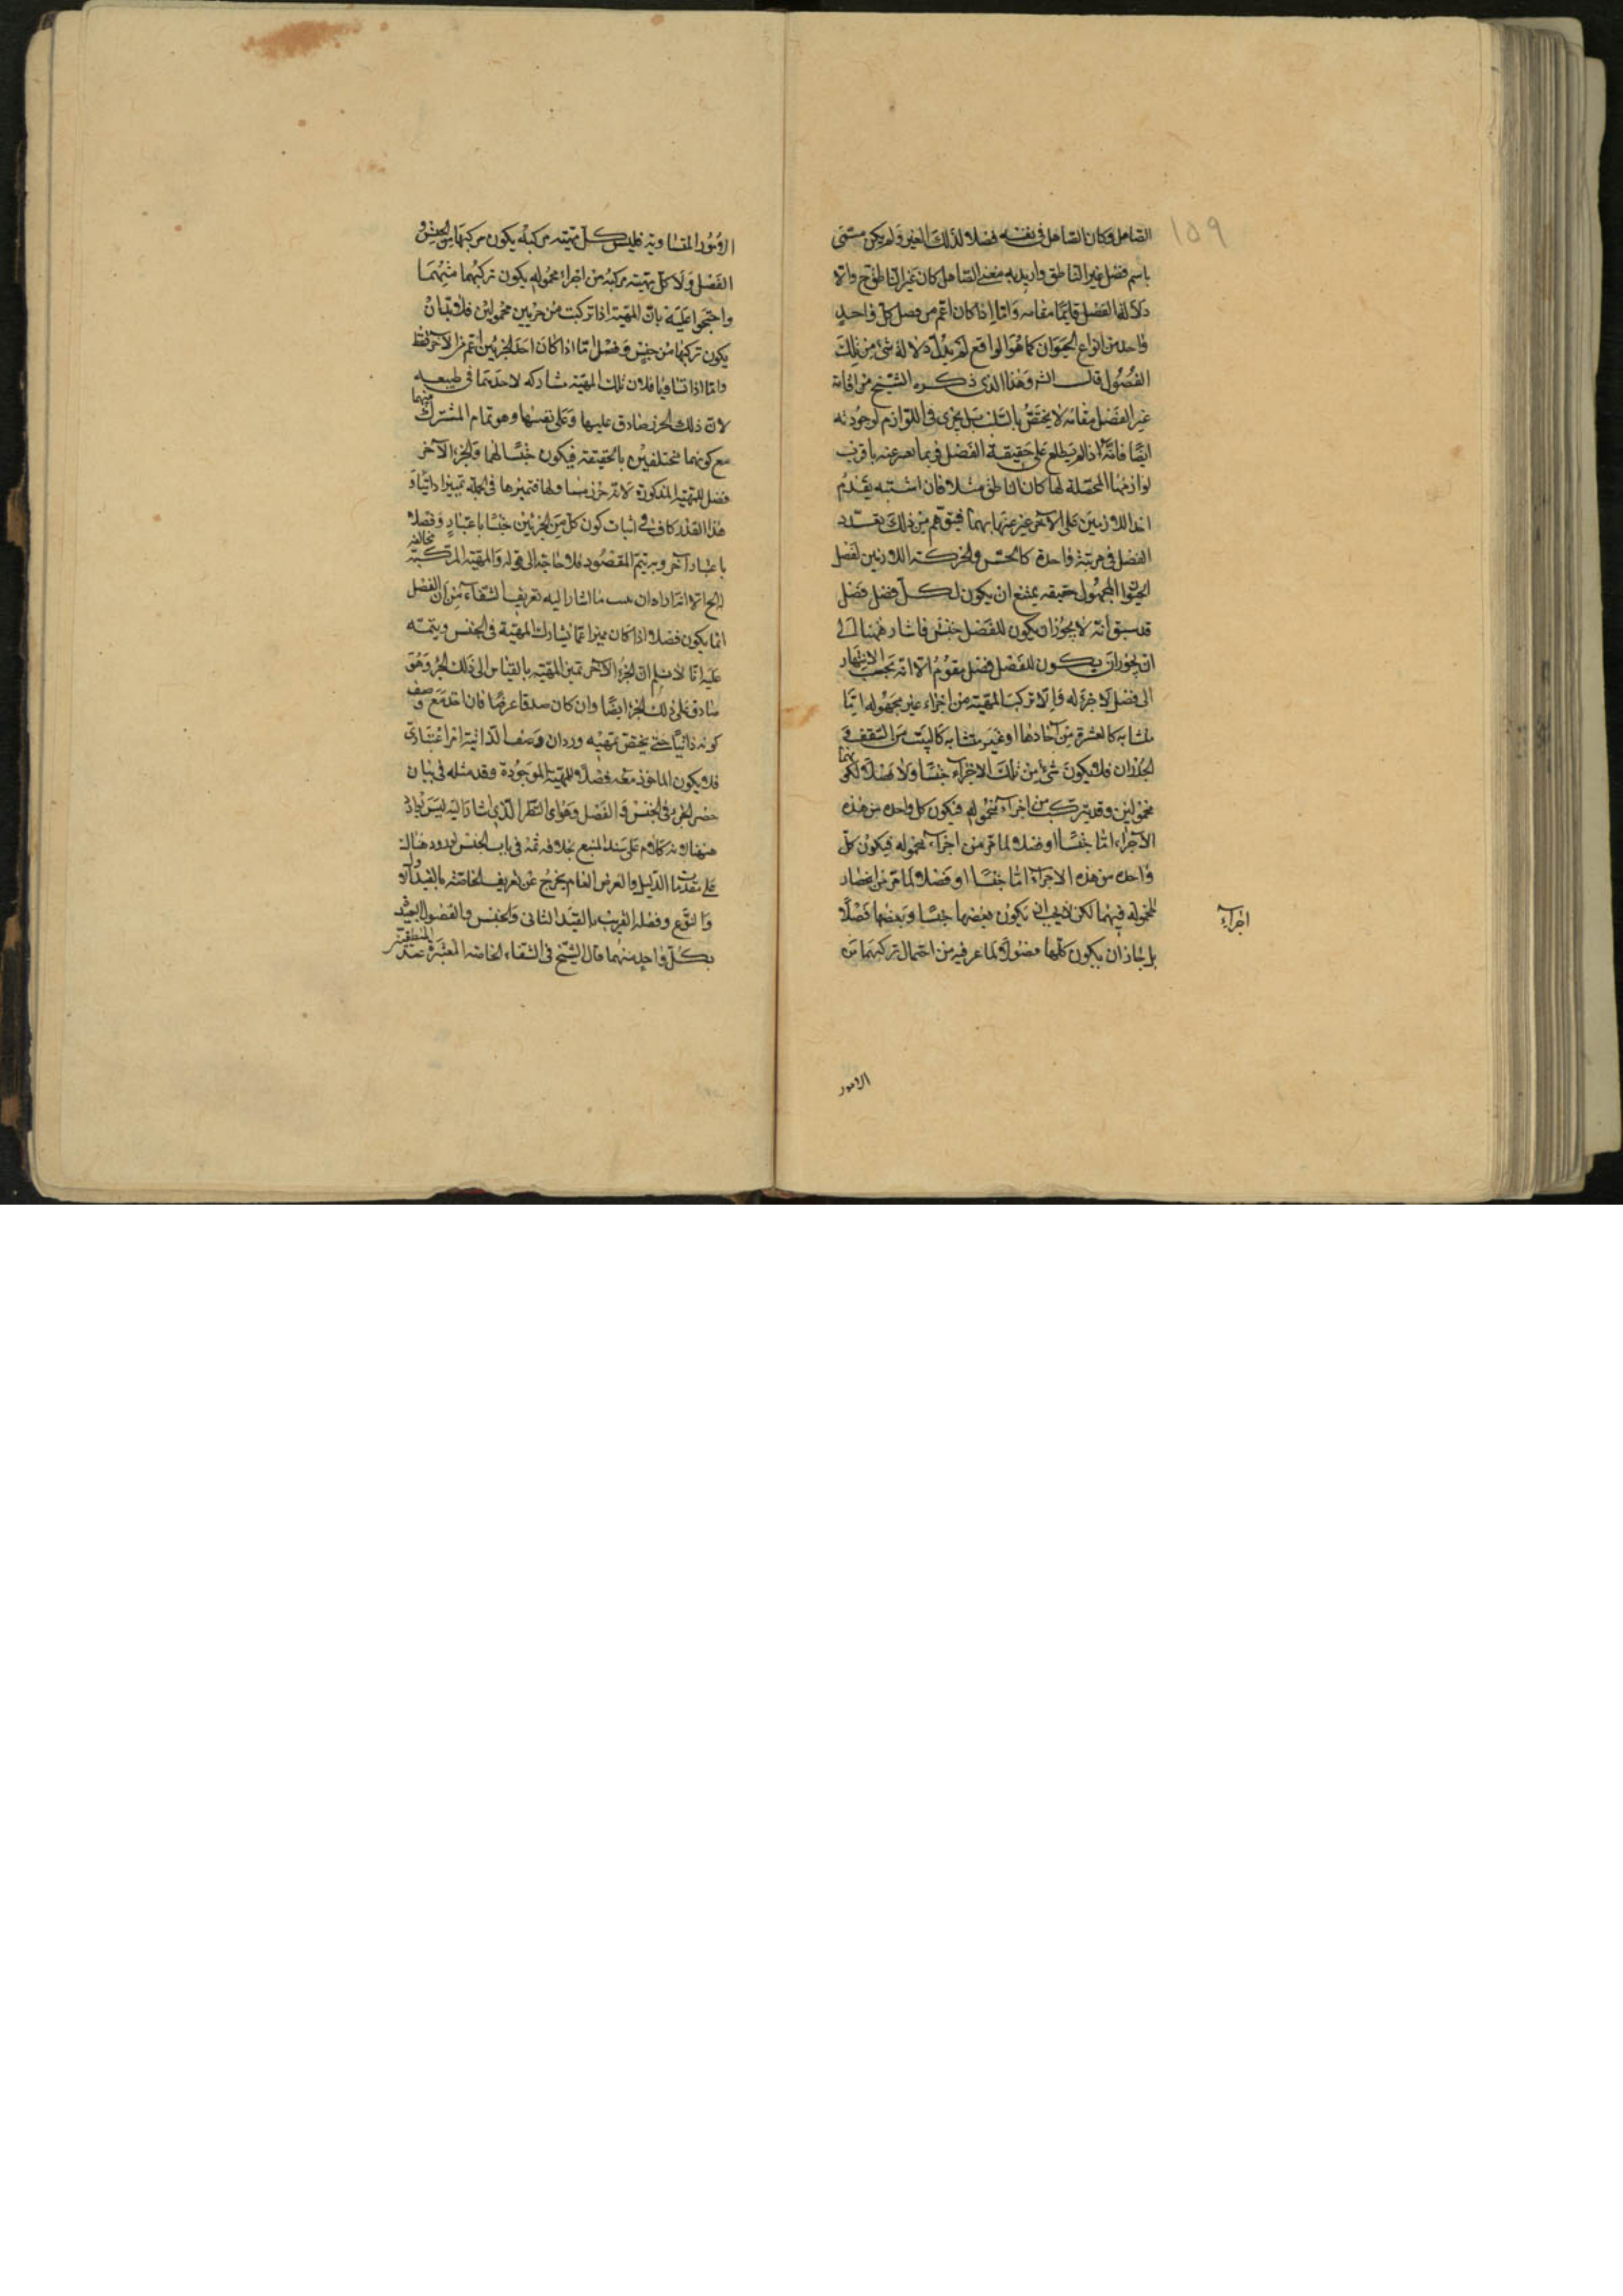 ١٥٩
الصاهل وكان الصاهل فى نفسه فضلا لذلك الغير ولم يكن مسمى
باسم فصل غير الناطق واريد به معنى الصاهل كان غير الناطق ح دالا
دلالة الفصل قايما مقامه واما اذا كان اعم من فصل كل واحد
واحد من انواع الحيوان كما هو الواقع لم يدل دلالة شئ من تلك
الفصول قال الش وهذا الذى ذكره الشيخ من اقامة
غير الفصل مقامه لا يختص بالسلب بل يجرى فى اللوازم لوجوديه
ايضا فانه اذا لم يطلع على حقيقة الفصل فربما يعبر عنه باقرب
لوازمها المحصلة لها كان الناطق مثلا فان اشتبه يقدم
احد اللازمين على الاخر عبر عنها بهما فيتوهم من ذلك تعدد
الفصل فى مرتبة واحدة كالحس والحركة اللازمين لفصل
الحيوان المجهول حقيقه يمتنع ان يكون لكل فصل فصل
قد سبق انه لا يجوز ان يكون للفصل جنس فاشار ههنا الى
ان يجوز ان يكون للفصل فصل مقوم الا انه يجب الانتهاء
الى فصل لا جزء له والا تركب المهية من اجزاء غير محموله اما
متشابه كالعشرة من آحادها او غير متشابه كالبيت من السقف و
الجدران فلا يكون شئ من تلك الاجزاء جنسا ولا فصلا لكونهما
محمولين وقد يتركب من اجزاء محموله فيكون كل واحد من هذه
الاجزاء اما جنسا او فصلا لما مر من اجزاء محموله فيكون كل
واحد من هذه الاجزاء اما جنسا او فصلا لما مر من انحصار
المحموله فيهما لكن لا يجب ان يكون بعضها جنسا وبعضها فصلا
بل جاز ان يكون كلها فصولا لما عرفته من احتمال تركبهما من
اجزاء
الامور
الامور المتساويه فليس كل مهية مركبة يكون مركبها من الجنس و
الفصل ولا كل مهية مركبة من اجزاء محموله يكون تركبهما منهما
واحتجوا عليه بان المهية اذا تركبت من جزيين محمولين فلا بد ان
يكون تركبها من جنس وفصل اما اذا كان احد الجزئين اعم من الآخر فقط
واما اذا تساويا فلان تلك المهية تشاركه لاحديهما فى طبيعه
لان ذلك الجزء صادق عليها وعلى نفسها وهو تمام المشترك منهما
مع كونهما مختلفين بالحقيقه فيكون جنسا لهما والجزء الآخر
فصل للمهية المذكورة لانه جزء مساو لها فتميزها فى الجملة تميزا ذاتيا و
هذا القدر كاف فى اثبات كون كل من الجزئين جنسا باعتبار وفصلا
باعتبار آخر وبه يتم المقصود فلا حاجة الى قوله والمهية المركبة مخالفه
الخ الا انه اراد ان ما اشار اليه تعريف الشفاء من ان الفصل
انما يكون فصلا اذا كان مميزا عما يشارك المهية فى الجنس ويتجه
عليه انا لا نسلم ان الجزء الآخر تميز المهية بالقياس الى ذلك الجزء وهو
صادق على ذلك الجزء ايضا وان كان صدقا عرضيا فان اخذ مع وصف
كونه ذاتيا حتى يختص بمهيه ورد ان وصف الذاتية امر اعتبارى
فلا يكون الماخوذ معه فصلا للمهية الموجودة وقد مثله فى بيان
حصر الجزء فى الجنس والفصل وهو اى النظر الذى اشار اليه ليس بوارد
ههنا لانه كلام على سند المنع بخلافه ثمه فى باب الجنس لوروده هناك
على مقدمات الدليل والعرض العام يخرج عن تعريف الخاصة بالقيد الاول
والنوع وفصله القريب بالقيد الثانى والجنس والفصول البعيدة
بكل واحد منهما قال الشيخ فى الشفاء الخاصة المعتبرة عند المنطقيين